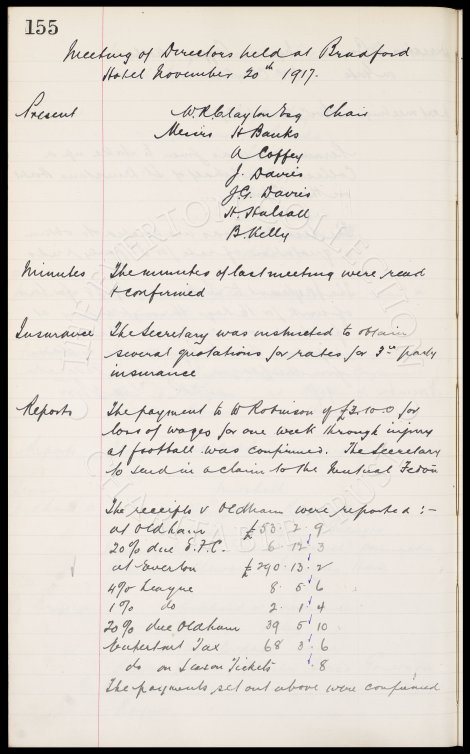 155
Meeting of Directors held at Bradford
Hotel November 20th 1917.
Present W.R. Clayton Esq Chair
Messrs H Banks
A Coffey
J. Davies
J.G. Davies
H. Halsall
B. Kelly
Minutes The minutes of last meeting were read
& confirmed
Insurance The Secretary was instructed to obtain
several quotations for rates for 3rd party
insurance
Reports The payment to W Robinson of £3.10.0 for
loss of wages for one week through injury
at football was confirmed. The Secretary
to send in a claim to the Mutual Fedon
The receipts v Oldham were reported :-
at Oldham £53. 2. 9
20% due E.F.C. 6. 12. 3
at Everton £290. 13. 2
4% League 8. 5. 6
1% do 2. 1. 4
20% due Oldham 39 5 10
Entertmt Tax 68 3. 6
do on Season Tickets 8
The payments set out above were confirmed